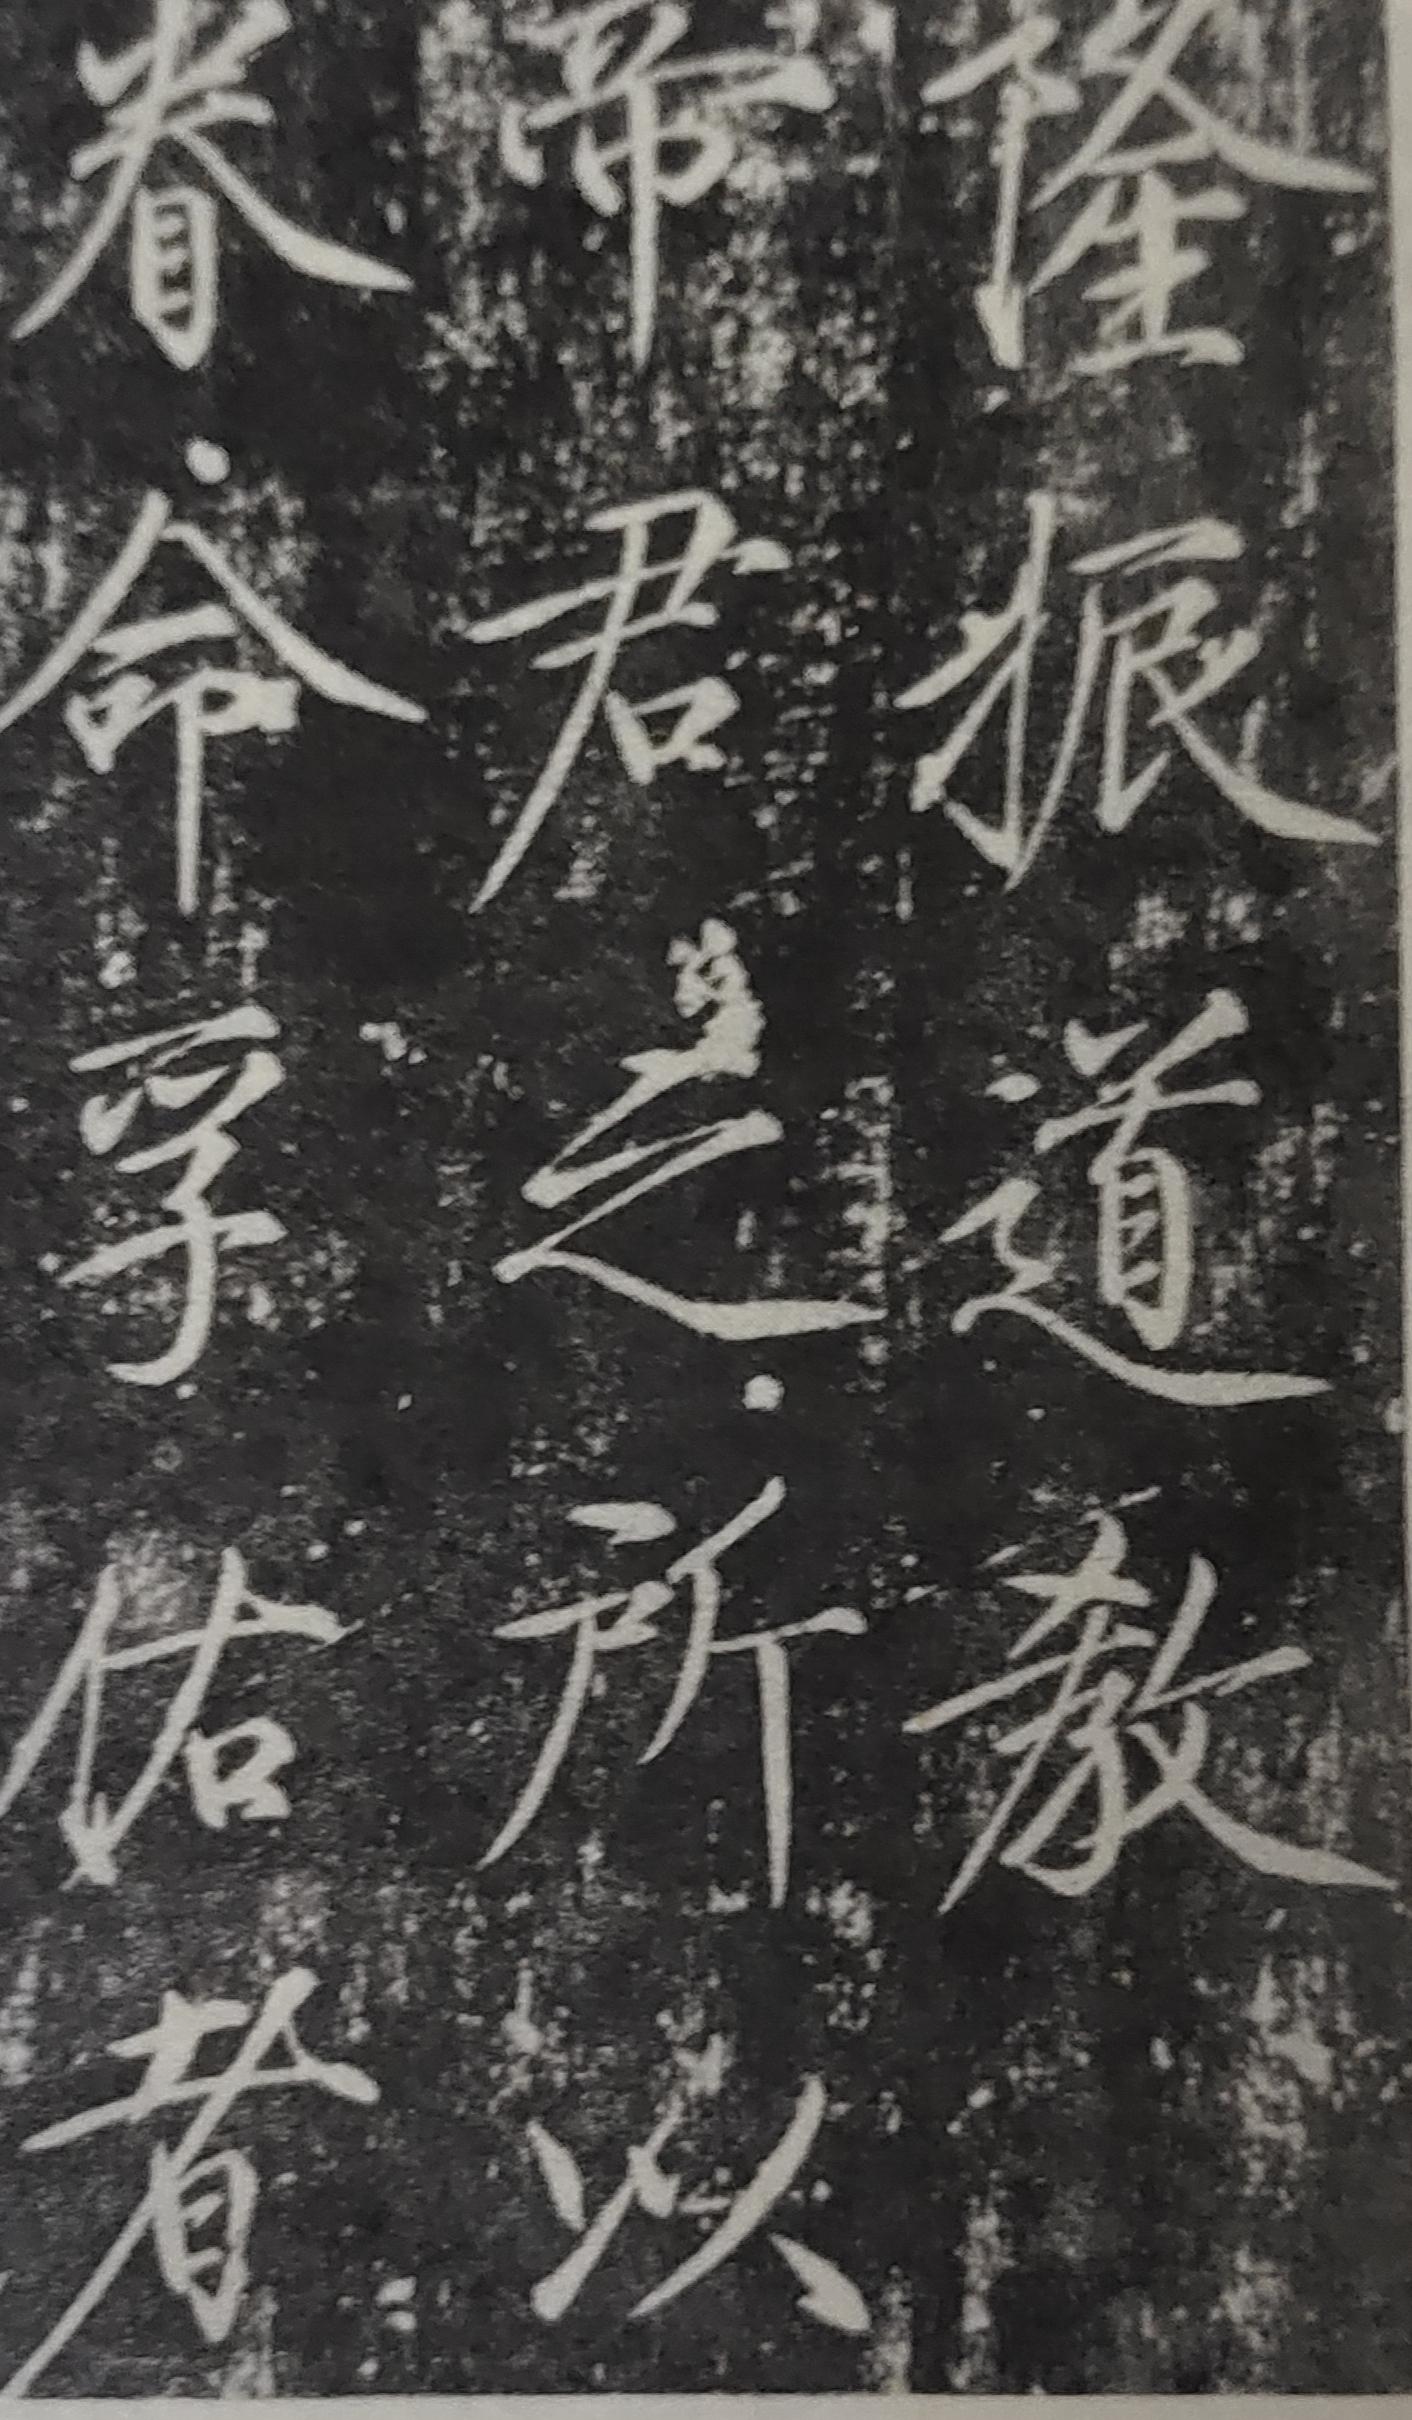 隆振道教
帝君之所以
眷命孚佑者